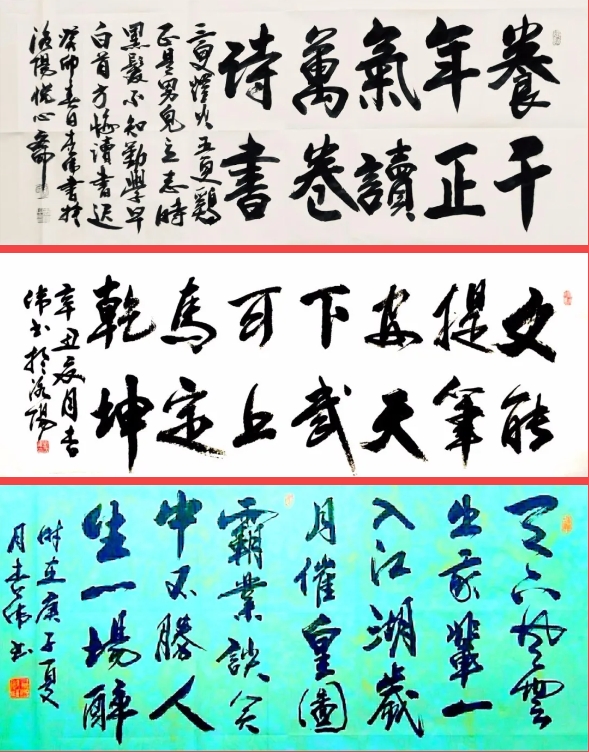 養千
年正
氣讀
萬卷
诗書
三更燈火五更鷄
正是男兒立志時
黑髮不知勤學早
白首方悔讀書迟
癸卯春日李伟書於
洛陽悦心齋
文能
提筆
安天
下武
可上
馬定
乾坤
辛丑夏月李
伟书於洛陽
天下风雲
出我輩一
入江湖歲
月催皇圖
霸業談笑
中不勝人
生一場醉
时在庚子夏
月李伟书